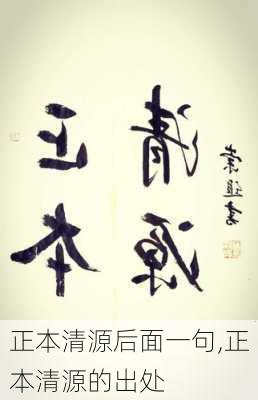 正本
清源
正本清源后面一句,正
本清源的出处